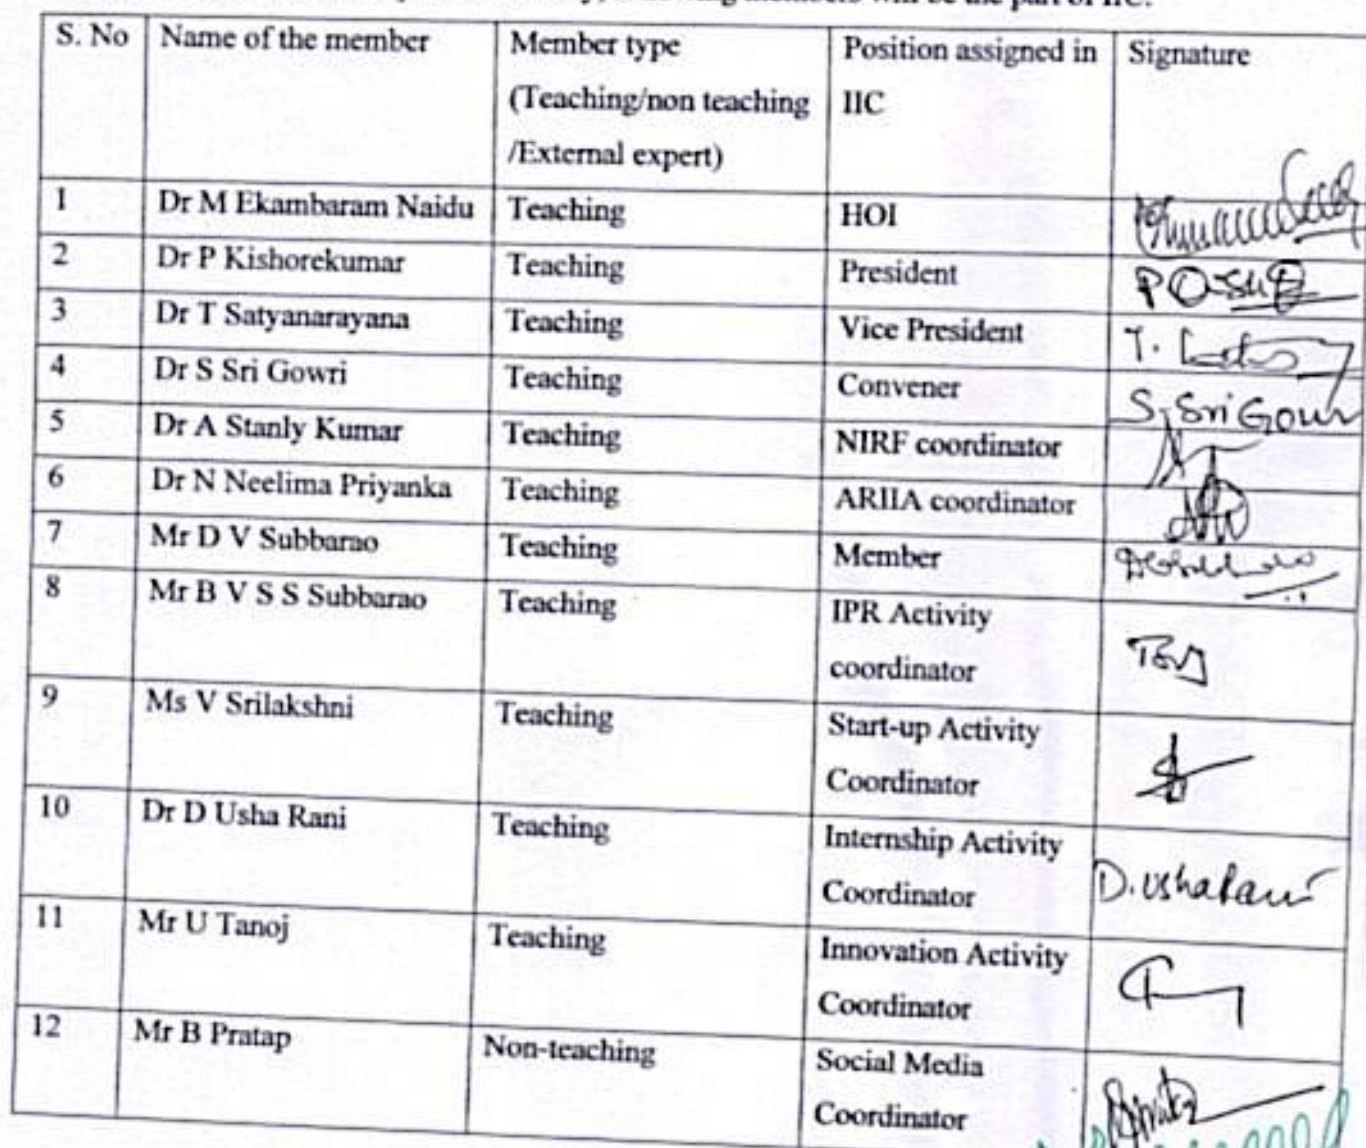 members will be the part of IIC.
S. No Name of the member Member type Position assigned in Signature
(Teaching/non teaching IIC
/External expert)
1 Dr M Ekambaram Naidu Teaching HOI
2 Dr P Kishorekumar Teaching President
3 Dr T Satyanarayana Teaching Vice President
4 Dr S Sri Gowri Teaching Convener S. Sri Gowri
5 Dr A Stanly Kumar Teaching NIRF coordinator
6 Dr N Neelima Priyanka Teaching ARIIA coordinator
7 Mr D V Subbarao Teaching Member
8 Mr B V S S Subbarao Teaching IPR Activity
coordinator
9 Ms V Srilakshni Teaching Start-up Activity
Coordinator
10 Dr D Usha Rani Teaching Internship Activity
Coordinator D. Usha Rani
11 Mr U Tanoj Teaching Innovation Activity
Coordinator
12 Mr B Pratap Non-teaching Social Media
Coordinator